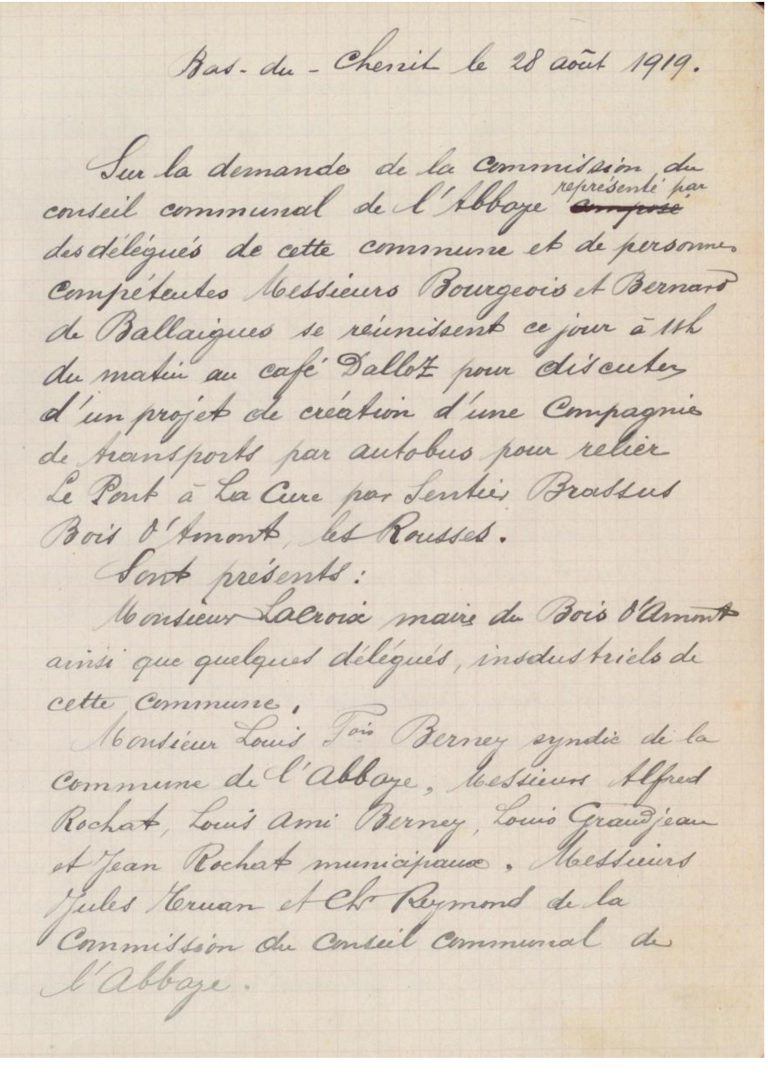 Bas-du-Chenit le 28 août 1919.
Sur la demande de la commission du
conseil communal de l'Abbaye représenté par composé
des délégués de cette commune et de personnes
compétentes Messieurs Bourgeois et Bernard
de Ballaigues se réunissent ce jour à 11h
du matin au café Dalloz pour discuter
d'un projet de création d'une Compagnie
de transports par autobus pour relier
Le Pont à La Cure par Sentier Brassus
Bois d'Amont, les Rousses.
Sont présents :
Monsieur Lacroix maire du Bois d'Amont
ainsi que quelques délégués, insdustriels de
cette commune.
Monsieur Louis Fois Berney syndic de la
commune de l'Abbaye, Messieurs Alfred
Rochat, Louis Ami Berney, Louis Grandjean
et Jean Rochat municipaux. Messieurs
Jules Truan et Chs Reymond de la
Commission du Conseil communal de
l'Abbaye.